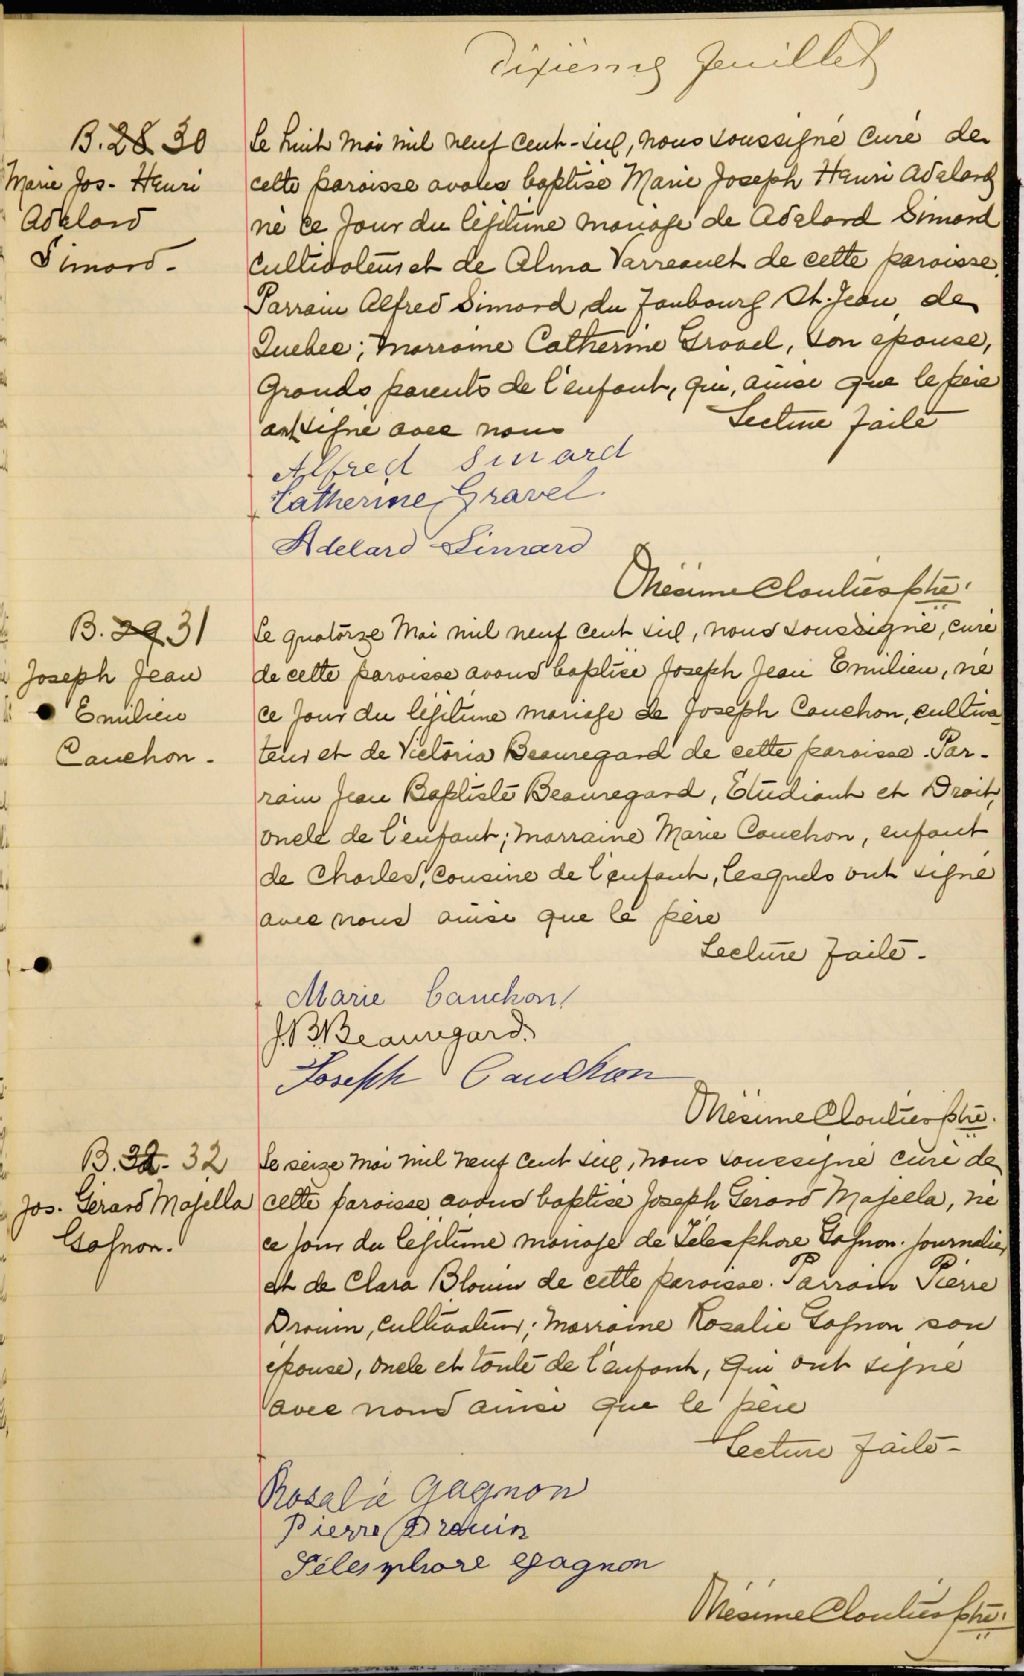 Dixième feuillet
B. 28 30
Marie Jos- Henri
Adelard
Simard.
Le huit mai mil neuf cent-six, nous soussigné curé de
cette paroisse avons baptisé Marie Joseph Henri Adelard
né ce jour du légitime mariage de Adelard Simard
cultivateur et de Alma Varreault de cette paroisse.
Parrain Alfred Simard du Faubourg St. Jean de
Quebec; marraine Catherine Gravel, son épouse,
Grands parents de l'enfant, qui, ainsi que le père
ont signé avec nous Lecture faite
Alfred Simard
Catherine Gravel.
Adelard Simard
Onésime Cloutier ptre.
B. 29 31
Joseph Jean
Emilien
Cauchon.
Le quatorze Mai mil neuf cent six, nous soussigné, curé
de cette paroisse avons baptisé Joseph Jean Emilien, né
ce jour du légitime mariage de Joseph Cauchon, cultiva-
teur et de Victoria Beauregard de cette paroisse. Par-
rain Jean Baptiste Beauregard, Etudiant et Droit,
oncle de l'enfant; marraine Marie Cauchon, enfant
de Charles, cousine de l'enfant, lesquels ont signé
avec nous ainsi que le père
Lecture faite.
Marie Cauchon
J.B. Beauregard.
Joseph Cauchon
Onésime Cloutier ptre.
B. 32
Jos. Gérard Majella
Gagnon.
Le seize mai mil neuf cent six, nous soussigné curé de
cette paroisse avons baptisé Joseph Gérard Majella, né
ce jour du légitime mariage de Télesphore Gagnon. journalier
et de Clara Blouin de cette paroisse. Parrain Pierre
Drouin, cultivateur; marraine Rosalie Gagnon son
épouse, oncle et tante de l'enfant, qui ont signé
avec nous ainsi que le père
Lecture faite
Rosalie Gagnon
Pierre Drouin
Télesphore Gagnon
Onésime Cloutier ptre.